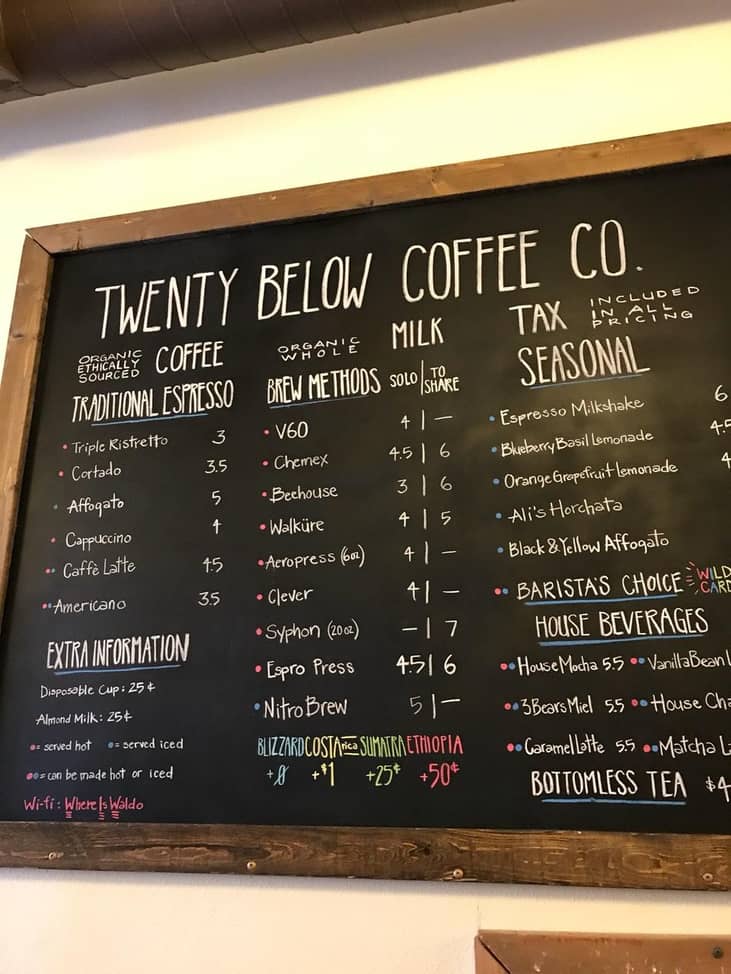 TWENTY BELOW COFFEE CO.
ORGANIC ETHICALLY SOURCED COFFEE
TRADITIONAL ESPRESSO
Triple Ristretto 3
Cortado 3.5
Affogato 5
Cappuccino 4
Caffè Latte 4.5
Americano 3.5
EXTRA INFORMATION
Disposable Cup: 25¢
Almond Milk: 25¢
= served hot = served iced
= can be made hot or iced
Wi-fi: Where Is Waldo
ORGANIC WHOLE MILK
BREW METHODS SOLO | TO SHARE
V60 4 | —
Chemex 4.5 | 6
Beehouse 3 | 6
Walküre 4 | 5
Aeropress (6oz) 4 | —
Clever 4 | —
Syphon (20oz) — | 7
Espro Press 4.5 | 6
Nitro Brew 5 | —
BLIZZARD COSTA rica SUMATRA ETHIOPIA
+0 +$1 +25¢ +50¢
TAX INCLUDED IN ALL PRICING
SEASONAL
Espresso Milkshake 6
Blueberry Basil Lemonade 4.5
Orange Grapefruit Lemonade 4
Ali's Horchata
Black & Yellow Affogato
BARISTA'S CHOICE WILD CARD
HOUSE BEVERAGES
House Mocha 5.5 Vanilla Bean L
3 Bears Miel 5.5 House Cha
Caramel Latte 5.5 Matcha L
BOTTOMLESS TEA $4